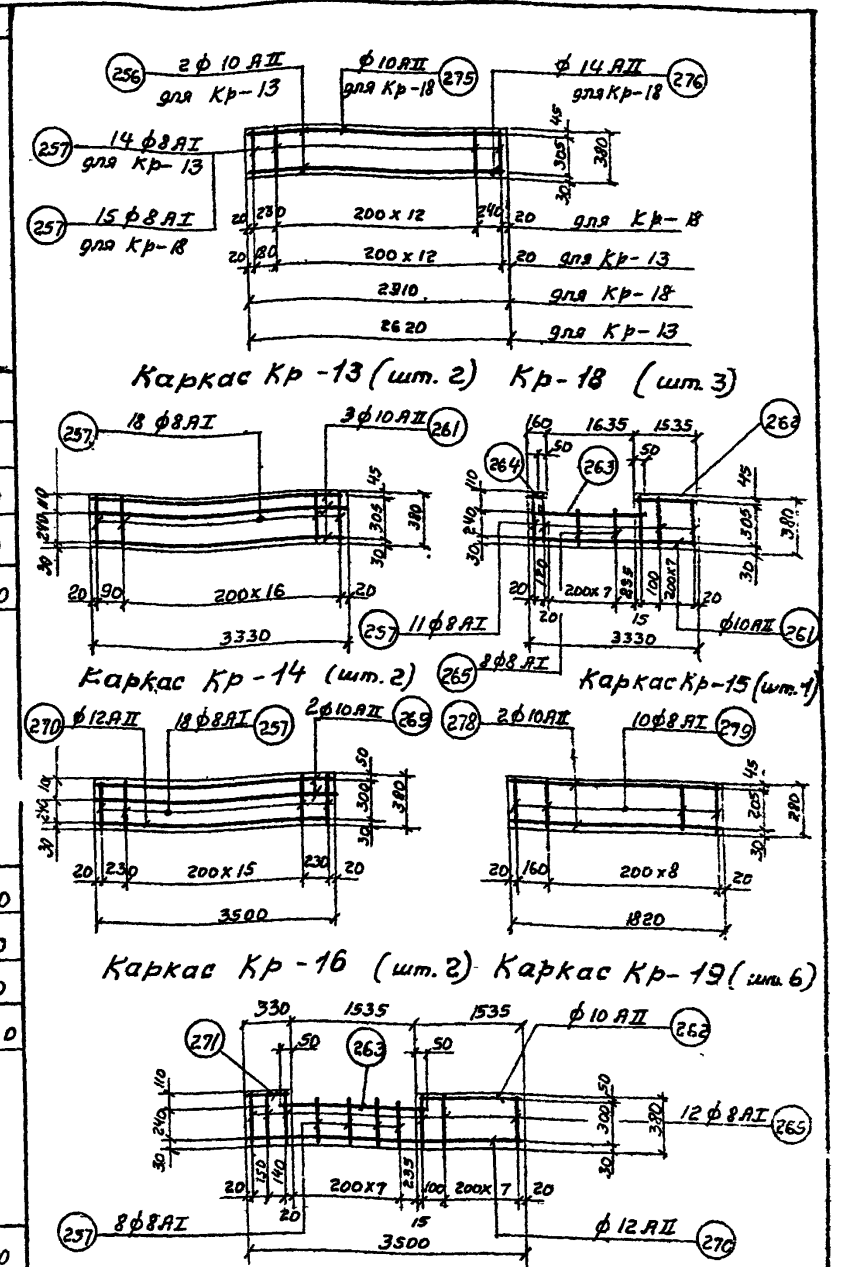 256 2ϕ10 АII для Кр-13
ϕ10АII для Кр-18 275
ϕ14 АII для Кр-18 276
257 14ϕ8АI для Кр-13
257 15ϕ8АI для Кр-18
45
305
30
380
20 200х12 240 20 для Кр-18
20 200х12 20 для Кр-13
2910 для Кр-18
2620 для Кр-13
Каркас Кр-13 (шт. 2) Кр-18 (шт. 3)
257 18ϕ8АI
3ϕ10АII 261
110
240
30
45
305
30
380
20 90 200х16 20
3330
Каркас Кр-14 (шт. 2)
160 1635 1535
262
50 50
264 263
110
240
30
45
305
30
380
20 120 200х7 235 100 200х7 20
20 15
257 11ϕ8АI
ϕ10АII 261
3330
265 8ϕ8АI
Каркас Кр-15 (шт. 1)
270 ϕ12АII
18ϕ8АI 257
2ϕ10АII 269
240
30
50
300
30
380
20 230 200х15 230 20
3500
Каркас Кр-16 (шт. 2)
278 2ϕ10АII
10ϕ8АI 279
45
205
30
280
20 160 200х8 20
1820
Каркас Кр-19 (шт. 6)
330 1535 1535
ϕ10 АII 262
271 50 263 50
110
240
30
50
300
30
380
12ϕ8АI 265
20 150 140 200х7 235 100 200х7 20
20 15
257 8ϕ8АI
ϕ12АII 270
3500